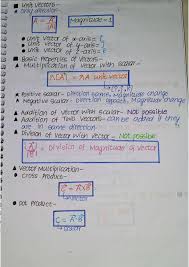 • Unit Vectors-
• Only direction-
Magnitude = 1
• Unit Vector of x-axis =
• Unit vector of y-axis =
• Unit vector of z-axis =
• Basic Properties of Vectors-
▲ Multiplication of Vector with Scalar-
• Positive Scalar- Direction same, Magnitude change
• Negative Scalar- Direction opposite, Magnitude change
• Addition of Vector with Scalar- Not possible
• Addition of Two Vectors- can be added if they are in same direction
• Division of Vector with Vector- Not possible
= Division of Magnitude of Vector
▲ Vector Multiplication-
• Cross Product-
C = A×B
• Dot Product-
C = A·B